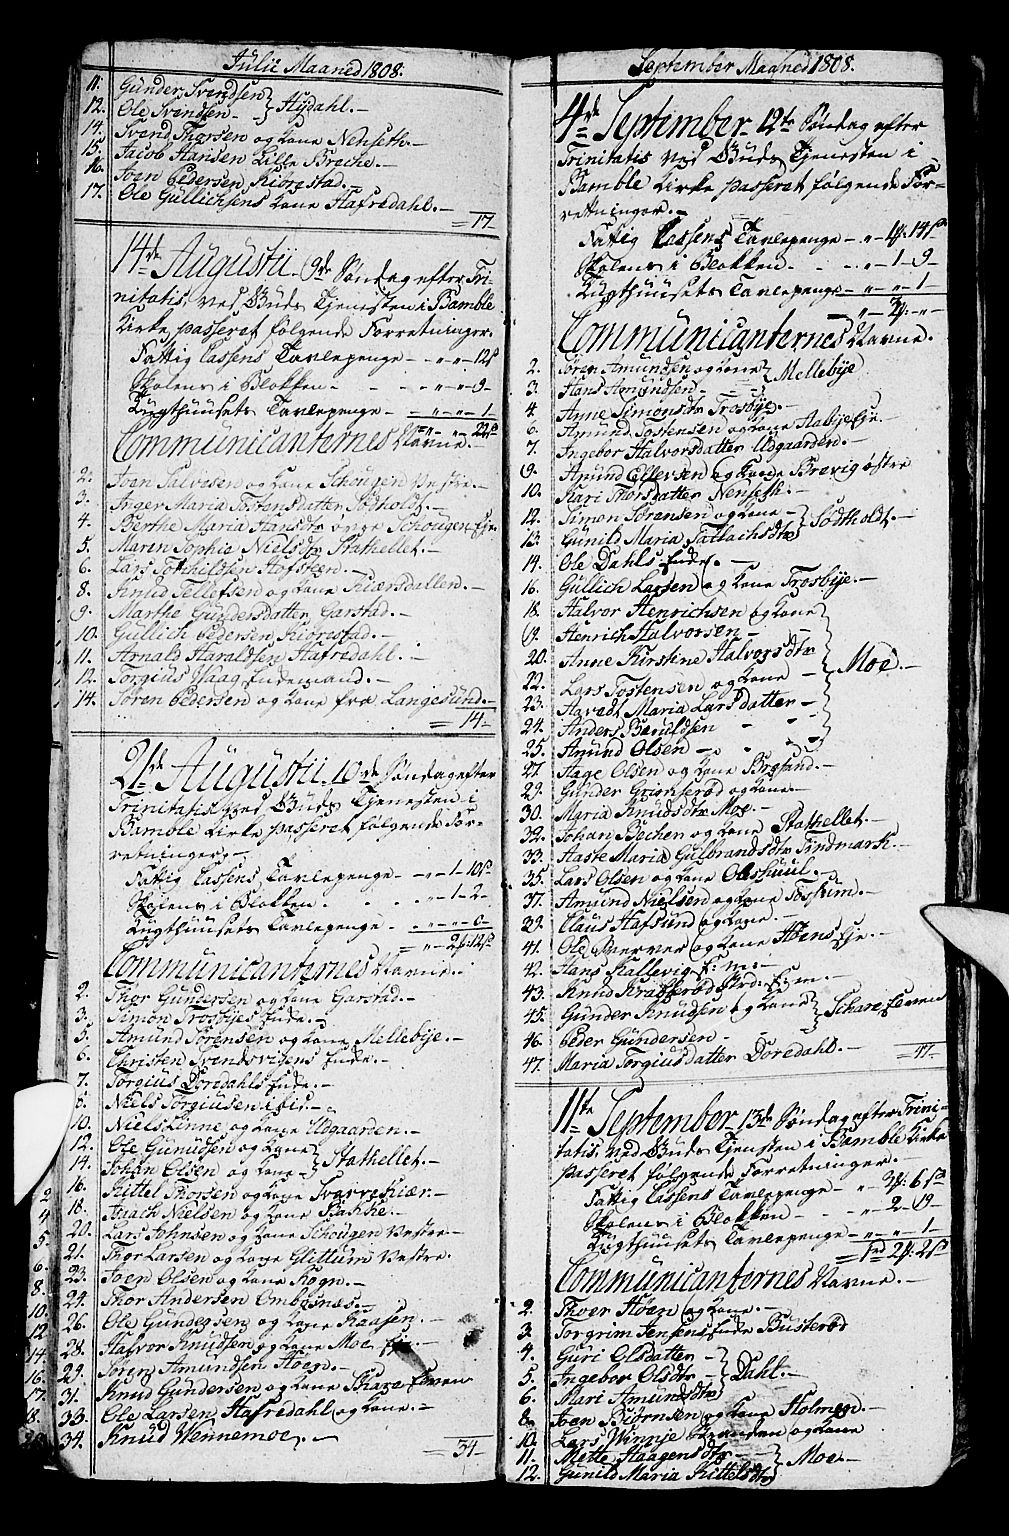 Julii Maaned 1808.
11. Gunder Svendsen
12. Ole Svendsen } Høydahl.
14. Svend Thorsen og Kone Nenseth.
15. Jacob Hansen Lille Breche.
16. Joen Pedersen Kiørestad.
17. Ole Gullichsens Kone Hafredahl.
= 17
14de Augustii 9de Søndag efter Tri-
nitatis, ved Guds Tjenesten i Bamble
Kirke passeret følgende Forretninger.
Fattig Cassens Tavlepenge - " - " - 12s
Skolens i Blokken - " - " - 9 -
Tugthuusets Tavlepenge - " - " - 1
" - " - 22s
Communicanternes Navne.
2. Joen Halvorsen og Kone Schougen Vestre.
3. Inger Maria Tostensdatter Sødholdt.
4. Berthe Maria Hansdtr Schougen Eje.
5. Maren Sophie Nielsdtr Stathellet.
6. Lars Torkildsen Hafsteen.
8. Knud Tellefsen og Kone Kiærsdallen.
9. Marthe Gundersdatter Garstad.
10. Gullich Pedersen Kiørestad.
11. Arnald Haraldsen Hafredahl.
12. Torgius Vaag Endemand.
14. Søren Pedersen og Kone fra Langesund.
= 14
21de Augustii 10de Søndag efter
Trinitatis, ved Guds Tjenesten i
Bamble Kirke passeret følgende For-
retninger.
Fattig Cassens Tavlepenge - " - 1 - 10s
Skolens i Blokken - " - 1 - 2 -
Tugthuusets Tavlepenge - " - " - 0
= " - 2#: 12s
Communicanternes Navne.
2. Thor Gundersen og Kone Garstad.
3. Simon Trosbyes Enke.
5. Amund Sørensen og Kone Mellebye.
6. Christen Svendsvigens Enke.
7. Torgius Doredahls Enke.
8. Niels Torgiusen ibid.
10. Niels Linne og Kone Udgaarden.
12. Ole Gunuldsen og Kone
14. Johan Olsen og Kone } Stathellet.
16. Kittel Thorsen og Kone Tvarrekiær.
18. Isach Nielsen og Kone Bakke.
20. Lars Johnsen og Kone Schougen Vestre.
21. Thor Larsen og Kone Glittum Vestre.
23. Joen Olsen og Kone Rogn.
24. Thor Andersen Ombosnæs.
26. Ole Gundersen og Kone Raasen.
28. Halvor Knudsen og Kone Moe Eje.
29. Søren Amundsen Hoen.
31. Knud Gundersen og Kone Skare
33. Ole Larsen Hafredahl og Kone.
34. Knud Wennemoe.
= 34
September Maaned 1808.
4de September 12te Søndag efter
Trinitatis ved Guds Tjenesten i
Bamble Kirke passeret følgende For-
retninger.
Fattig Cassens Tavlepenge - " - 1#: 14s
Skolens i Blokken - " - 1 - 9 -
Tugthuusets Tavlepenge - " - " - 1 -
- " - 3#: " -
Communicanternes Navne.
2. Søren Amundsen og Kone
3. Hans Amundsen } Mellebye
4. Anne Simonsdtr Trosbye.
6. Amund Tostensen og Kone Aabye Eje.
7. Ingebor Halvorsdatter Udgaarden.
9. Amund Ellevsen og Kone Brevig østre
10. Kari Thorsdatter Nenseth.
12. Simon Sørensen og Kone
13. Gunild Maria Tallachsdtr } Sødtholdt.
14. Ole Dahls Enke.
16. Gullich Larsen og Kone Trosbye.
18. Halvor Henrichsen og Kone
19. Henrich Halvorsen
20. Anne Kirstine Halvorsdtr
22. Lars Tostensen og Kone } Moe.
23. Haavedt Maria Larsdatter
24. Anders Baruldsen
25. Amund Olsen
27. Aage Olsen og Kone Brosund.
29. Gunder Grimserød og Kone.
30. Maria Knudsdtr Moe.
32. Johan Becher og Kone Stathellet.
33. Aaste Maria Gulbrandsdtr Findmark.
35. Lars Olsen og Kone Oleshuul.
37. Amund Nielsen og Kone Fossum.
39. Claus Hafsund og Kone.
41. Ole Sverver og Kone Høens Eje.
42. Hans Kallevig E: m:
43. Knud Krafserød Ord. E: m.
45. Gunder Knudsen og Kone
46. Peder Gundersen } Skare
47. Maria Torgiusdatter Doredahl.
= 47 -
11te September 13de Søndag efter Trini-
tatis, ved Guds Tjenesten i Bamble Kirke
passeret følgende Forretninger.
Fattig Cassens Tavlepenge - " - 3#: 6s
Skolens i Blokken - " - 2 - 19 -
Tugthuusets Tavlepenge - " - " - 1 -
= 1rd 2#: 2s
Communicanternes Navne.
2. Thoer Høen og Kone.
3. Torgrim Jensens Enke Busterød
4. Guri Olsdatter
5. Ingebor Olsdtr } Dahl.
6. Mari Amundsdtr
8. Joen Biørnsen og Kone Holmen.
10. Lars Winnje og Kone
11. Mette Haagensdtr
12. Gunild Maria Kittelsdtr } Moe.